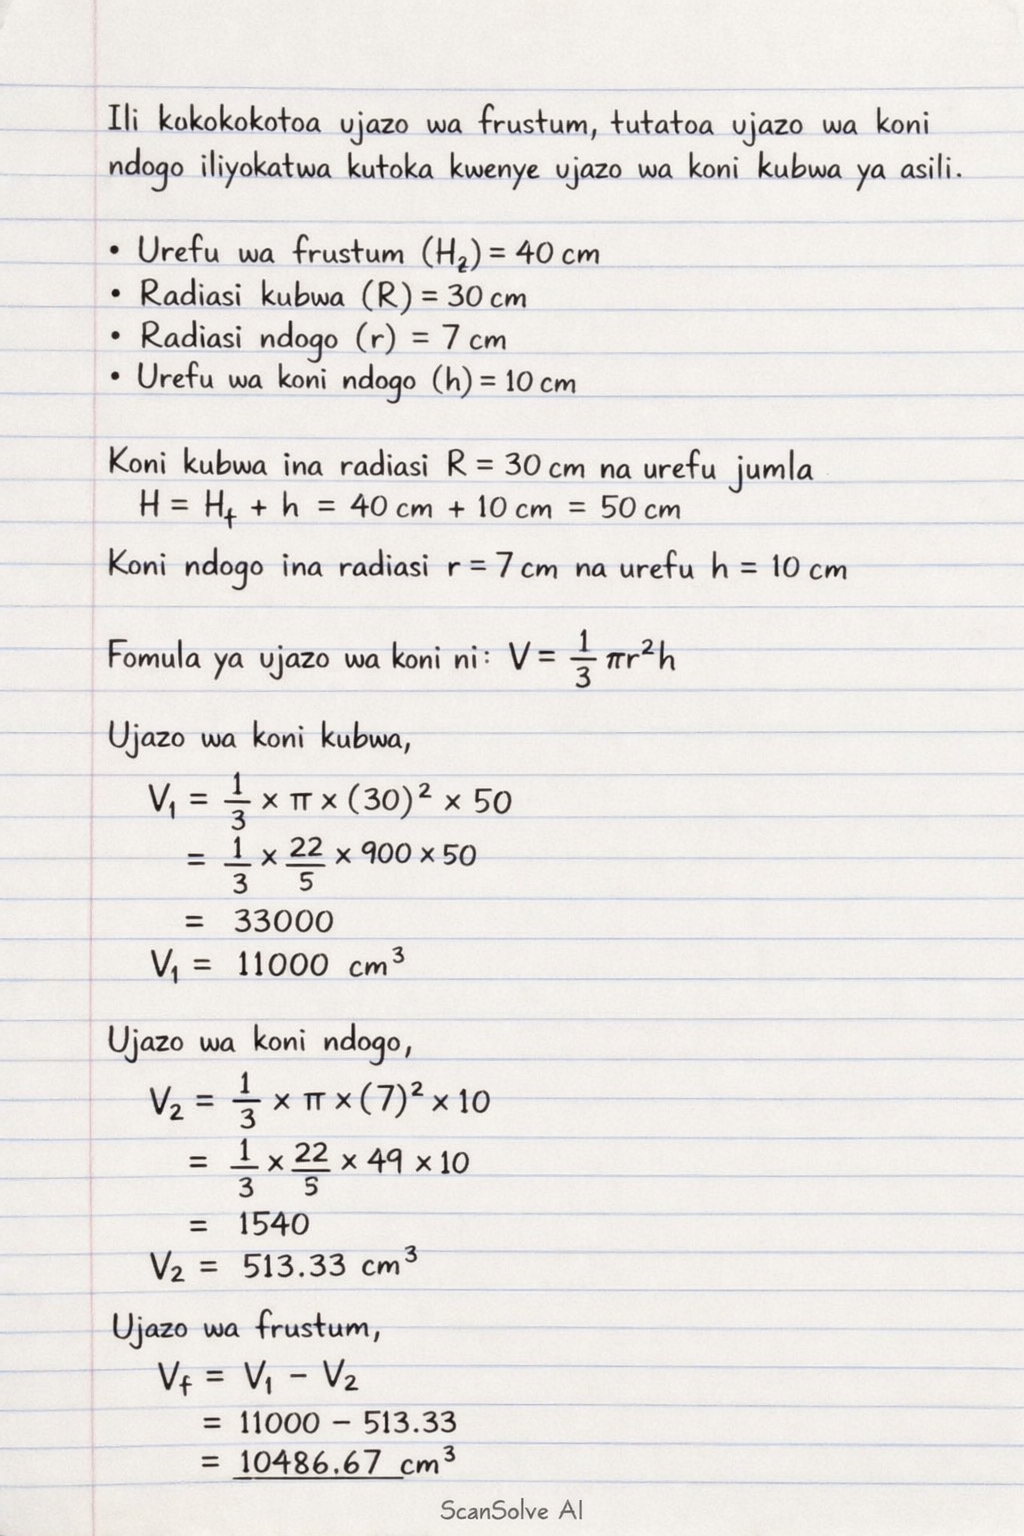 Ili kokokokotoa ujazo wa frustum, tutatoa ujazo wa koni
ndogo iliyokatwa kutoka kwenye ujazo wa koni kubwa ya asili.
• Urefu wa frustum (H₂) = 40 cm
• Radiasi kubwa (R) = 30 cm
• Radiasi ndogo (r) = 7 cm
• Urefu wa koni ndogo (h) = 10 cm
Koni kubwa ina radiasi R = 30 cm na urefu jumla
H = H_f + h = 40 cm + 10 cm = 50 cm
Koni ndogo ina radiasi r = 7 cm na urefu h = 10 cm
Fomula ya ujazo wa koni ni: V = 1/3 πr²h
Ujazo wa koni kubwa,
V₁ = 1/3 × π × (30)² × 50
= 1/3 × 22/5 × 900 × 50
= 33000
V₁ = 11000 cm³
Ujazo wa koni ndogo,
V₂ = 1/3 × π × (7)² × 10
= 1/3 × 22/5 × 49 × 10
= 1540
V₂ = 513.33 cm³
Ujazo wa frustum,
V_f = V₁ − V₂
= 11000 − 513.33
= 10486.67 cm³
ScanSolve AI